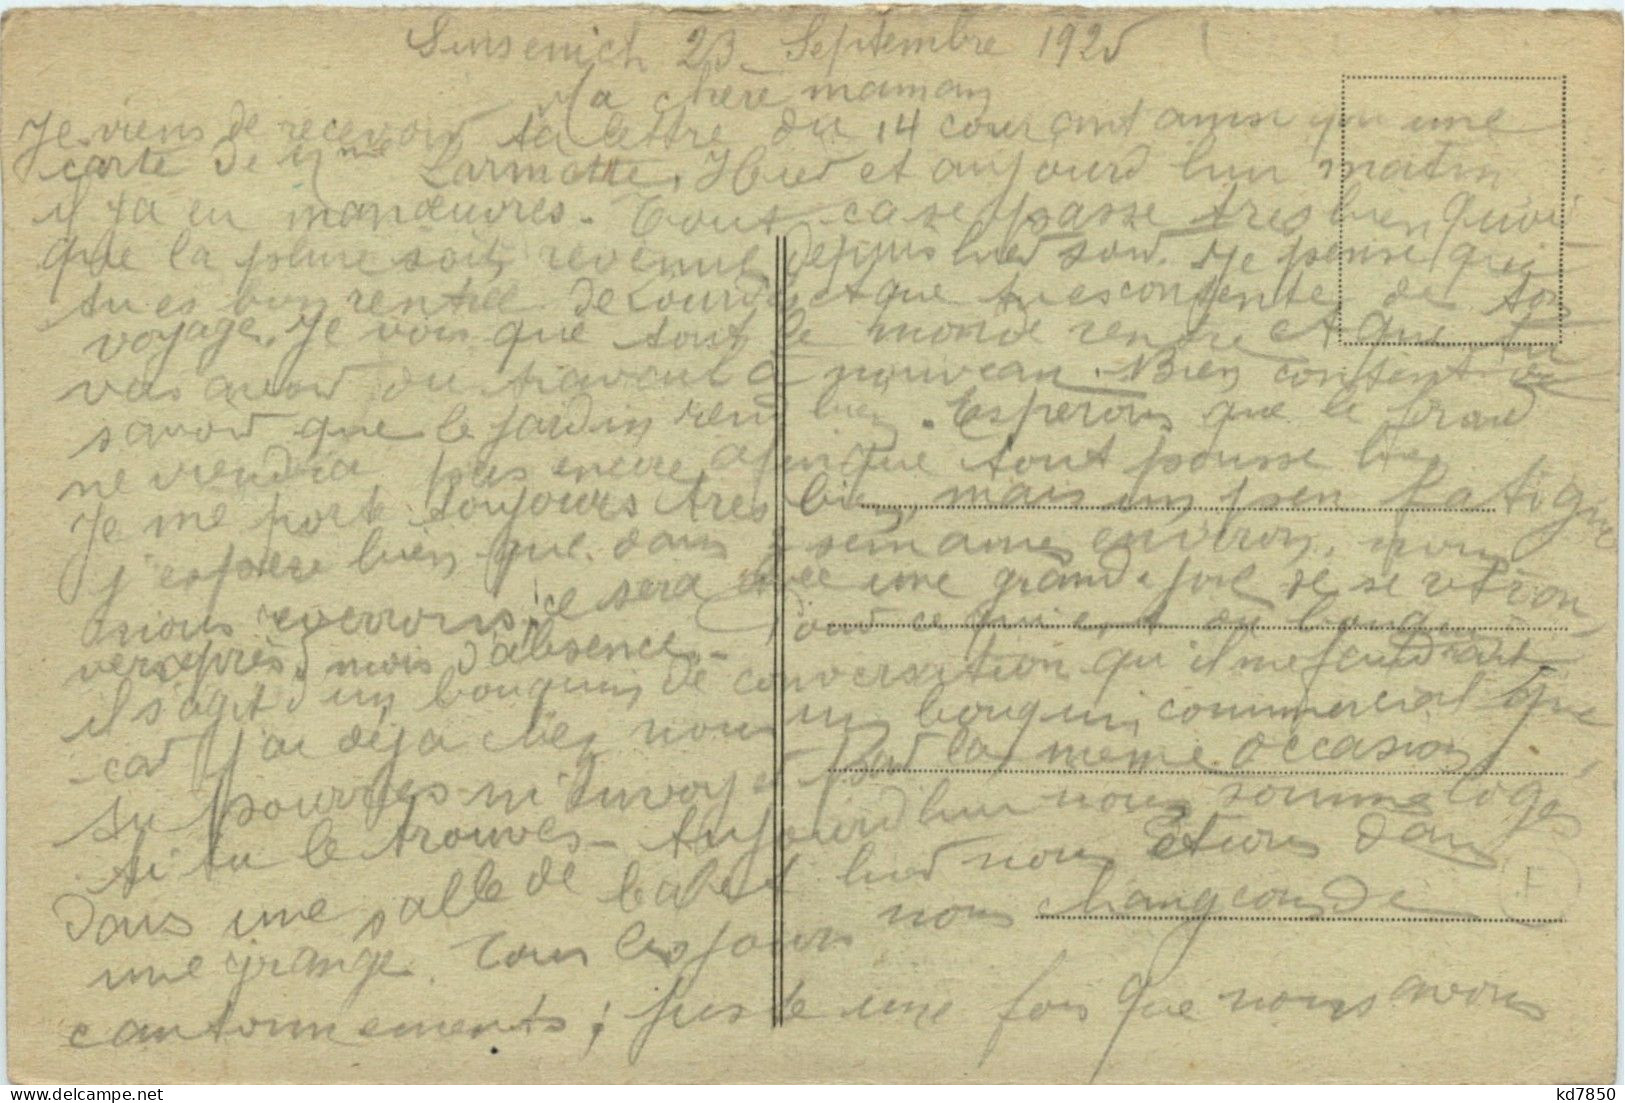 Sinsenich 23 Septembre 1925
Ma chere maman
Je viens de recevoir ta lettre du 14 courant ainsi qu une
carte de Mme Larmotte. Hier et aujourd hui matin
il y a eu manœuvres. Tout ca se passe tres bien quoi
que la pluie soit revenue depuis hier soir. Je pense que
tu es bien rentrée de Lourdes et que tu es contente de ton
voyage. Je vois que tout le monde rentre et que tu
vas avoir du travail à nouveau. Bien content de
savoir que le jardin rend bien. Esperons que le froid
ne viendra pas encore afin que tout pousse bien
Je me porte toujours tres bien, mais un peu fatigué
j'espère bien que dans semaines environ, nous
nous reverrons; ce sera avec une grande joie de se retrou
ver après mois d'absence. Pour ce qui est du bouquin
il s'agit d'un bouquin de conversation qu il me faudrait
car j'ai déjà chez nous un bouquin commercial que
tu pourras m'envoyer par la même occasion,
si tu le trouves. Aujourd hui nous sommes logés
dans une salle de bal et hier nous étions dans
une grange. Tous les jours nous changeons de
cantonnements; juste une fois que nous avons
kd7850